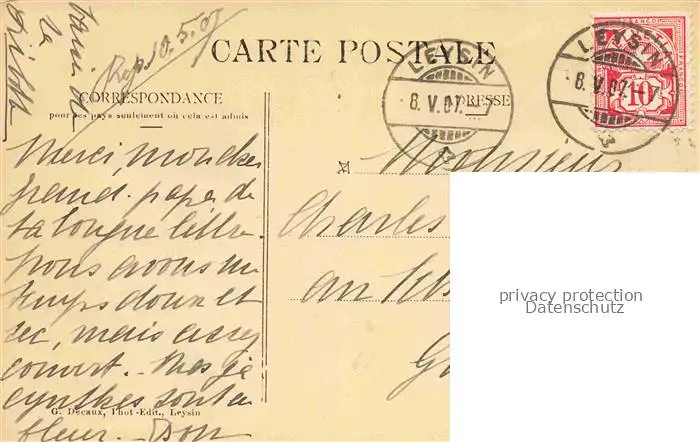 Rép. 10.5.07
CARTE POSTALE
CORRESPONDANCE
pour les pays seulement où cela est admis
ADRESSE
LEYSIN
8.V.07.-7
LEYSIN
8.V.07.-7
FRANCO
10
Merci, mon cher
grand-papa de
ta longue lettre.
Nous avons un
temps doux et
sec, mais assez
couvert. Mes ja
cynthes sont en
fleur. Bon
Monsieur
Charles
au
G. Decaux, Phot-Edit., Leysin
privacy protection
Datenschutz